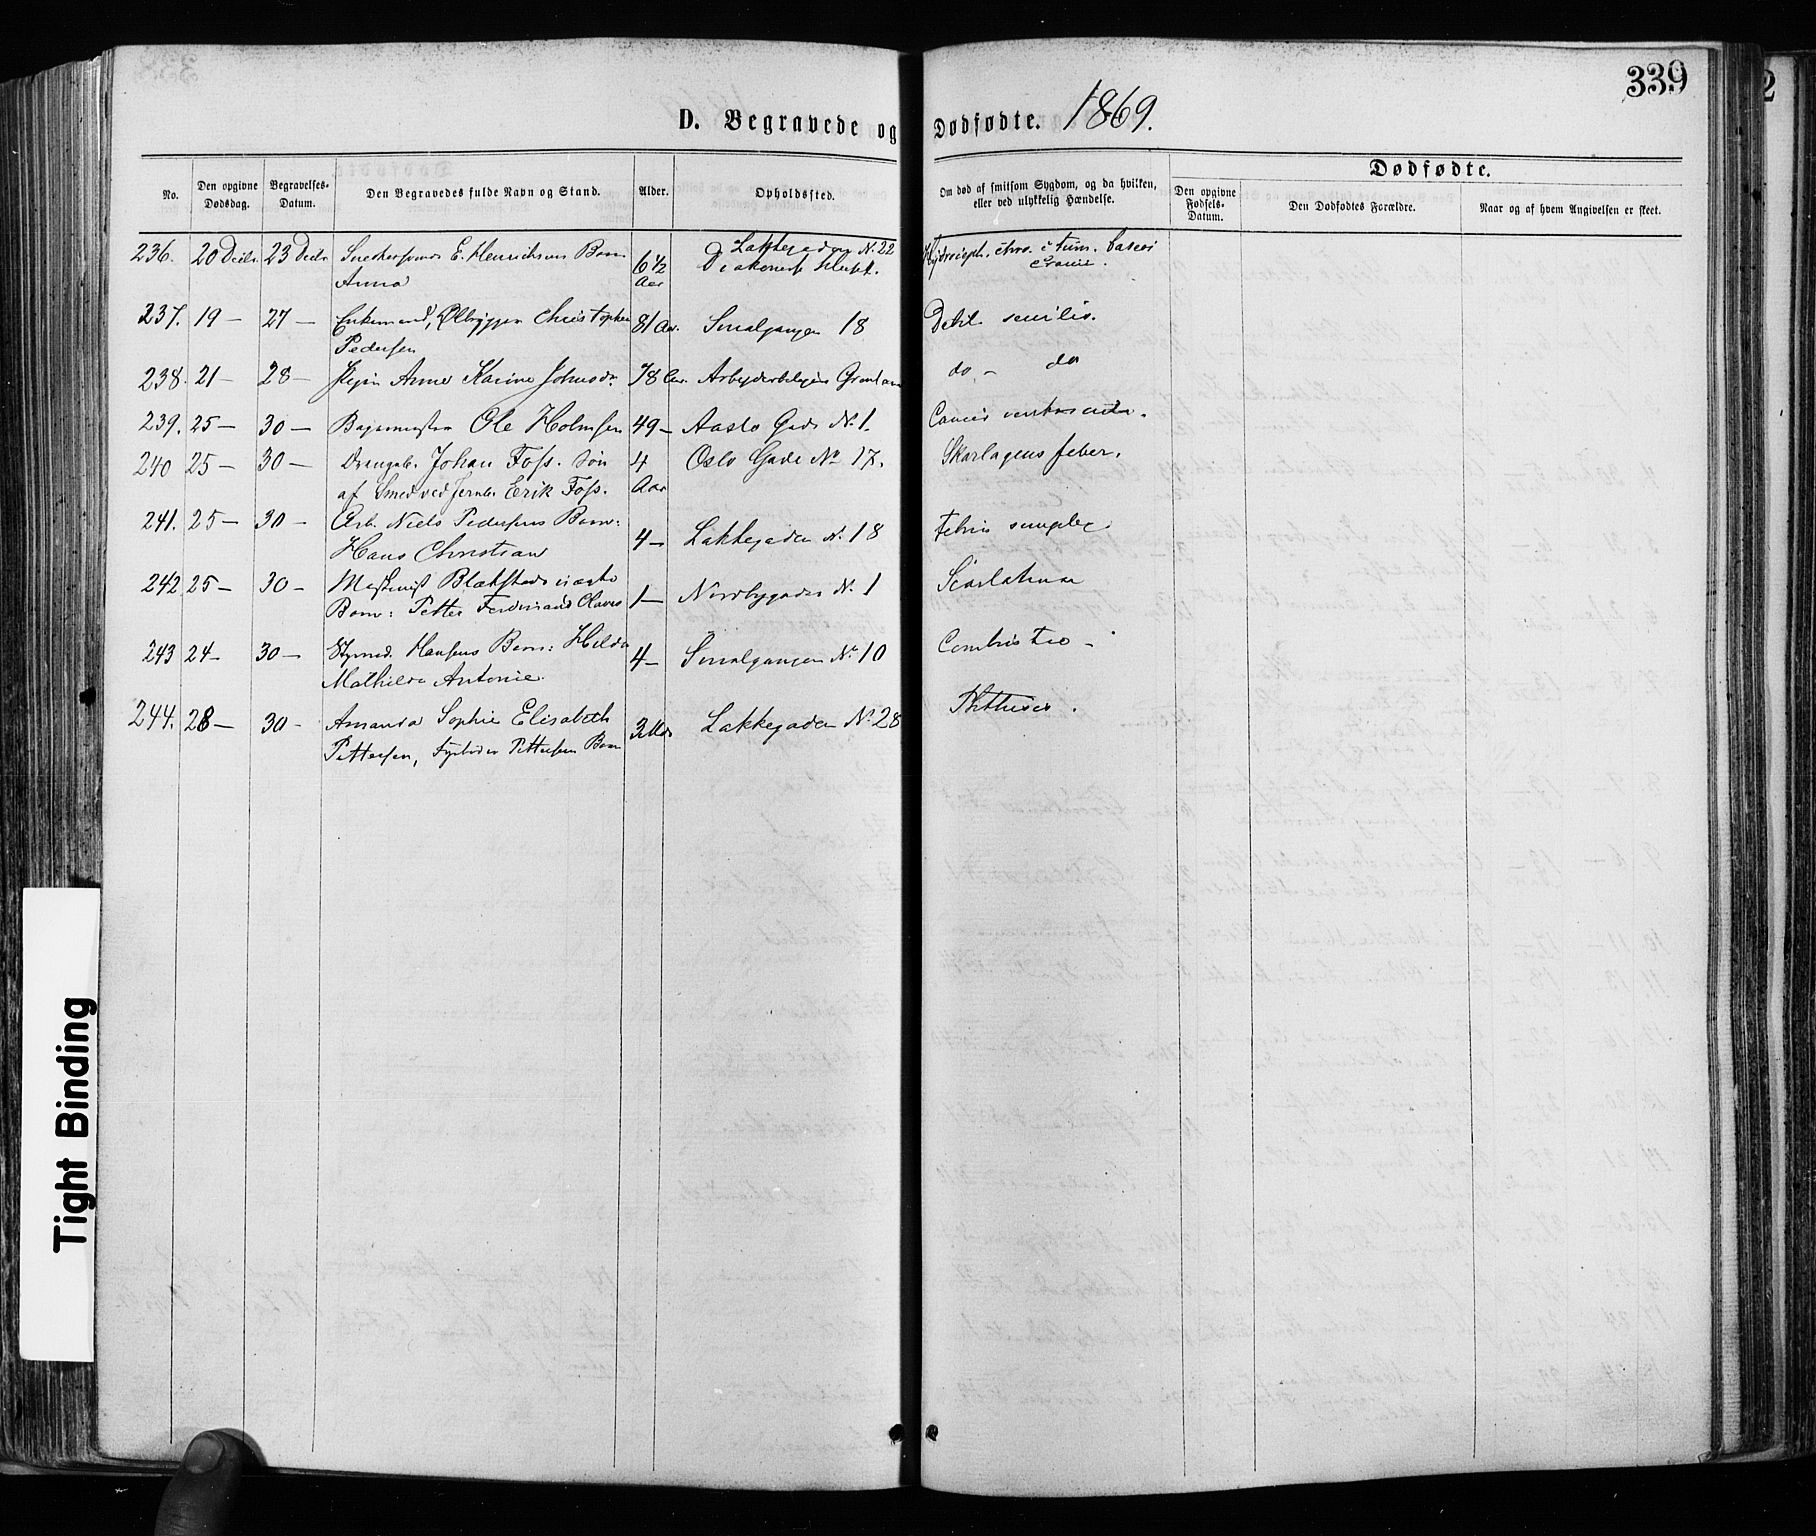 339
D. Begravede og Dødfødte. 1869.
No.
Den opgivne Dødsdag.
Begravelses-Datum.
Den Begravedes fulde Navn og Stand.
Alder.
Opholdssted.
Om død af smitsom Sygdom, og da hvilken, eller ved ulykkelig Hændelse.
Dødfødte.
Den opgivne Fødsels-Datum.
Den Dødfødtes Forældre.
Naar og af hvem Angivelsen er skeet.
236. 20 Decbr 23 Decbr E. Henriksens Barn 6 1/2 Lakkegaden N. 22
Anna Aar
237. 19 — 27 — Enkemand, Ølbrygger Christopher 81 Aar. Smalgangen 18 Debil. senilis.
Pedersen
238. 21 — 28 — Anne Karine Johnsdr 78 Aar. do — do
239. 25 — 30 — Ole Holmsen 49 — Gade No. 1. Cancer
240 25 — 30 — Johan Foss. Søn 4 Oslo Gade No 17. Skarlagensfeber.
af Smed ved Jernb. Erik Foss. Aar
241. 25 — 30 — Arb. Niels Pedersens Barn: Febris simplex.
Hans Christian 4 — Lakkegaden N. 18
242 25 — 30 — Maskinist Blakstads Scarlatina
Barn: Petter Ferdinand 1 — Nordbygaden N. 1
243 24 — 30 — Hansens Barn: Hilda 4 — Smalgangen No. 10 Combustio —
Mathilde Antonie.
244. 28 — 30 — Amanda Sophie Elisabeth 3 Mdr Lakkegaden No. 28 Phthisis.
Pettersen, Fyrbøder Pettersens Barn
Tight Binding
2